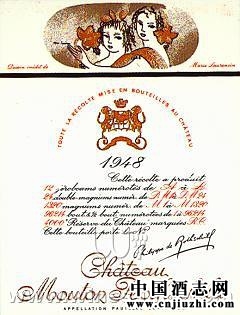 Dessin inédit de Marie Laurencin
TOUTE LA RÉCOLTE MISE EN BOUTEILLES AU CHÂTEAU
1948
Cette récolte a produit
12 jéroboams numérotés de
24 double-magnums numér. de
1320 magnums numér. de M à M 1320
96214 bout. & ½ bout. numérotées de 1 à 96214
4000 "Réserve du Château" marquées R.C.
Cette bouteille porte le N°
Philippe de Rothschild
Château
Mouton
APPELLATION PAUILLAC
中国酒志网
www.cnjiuzhi.com